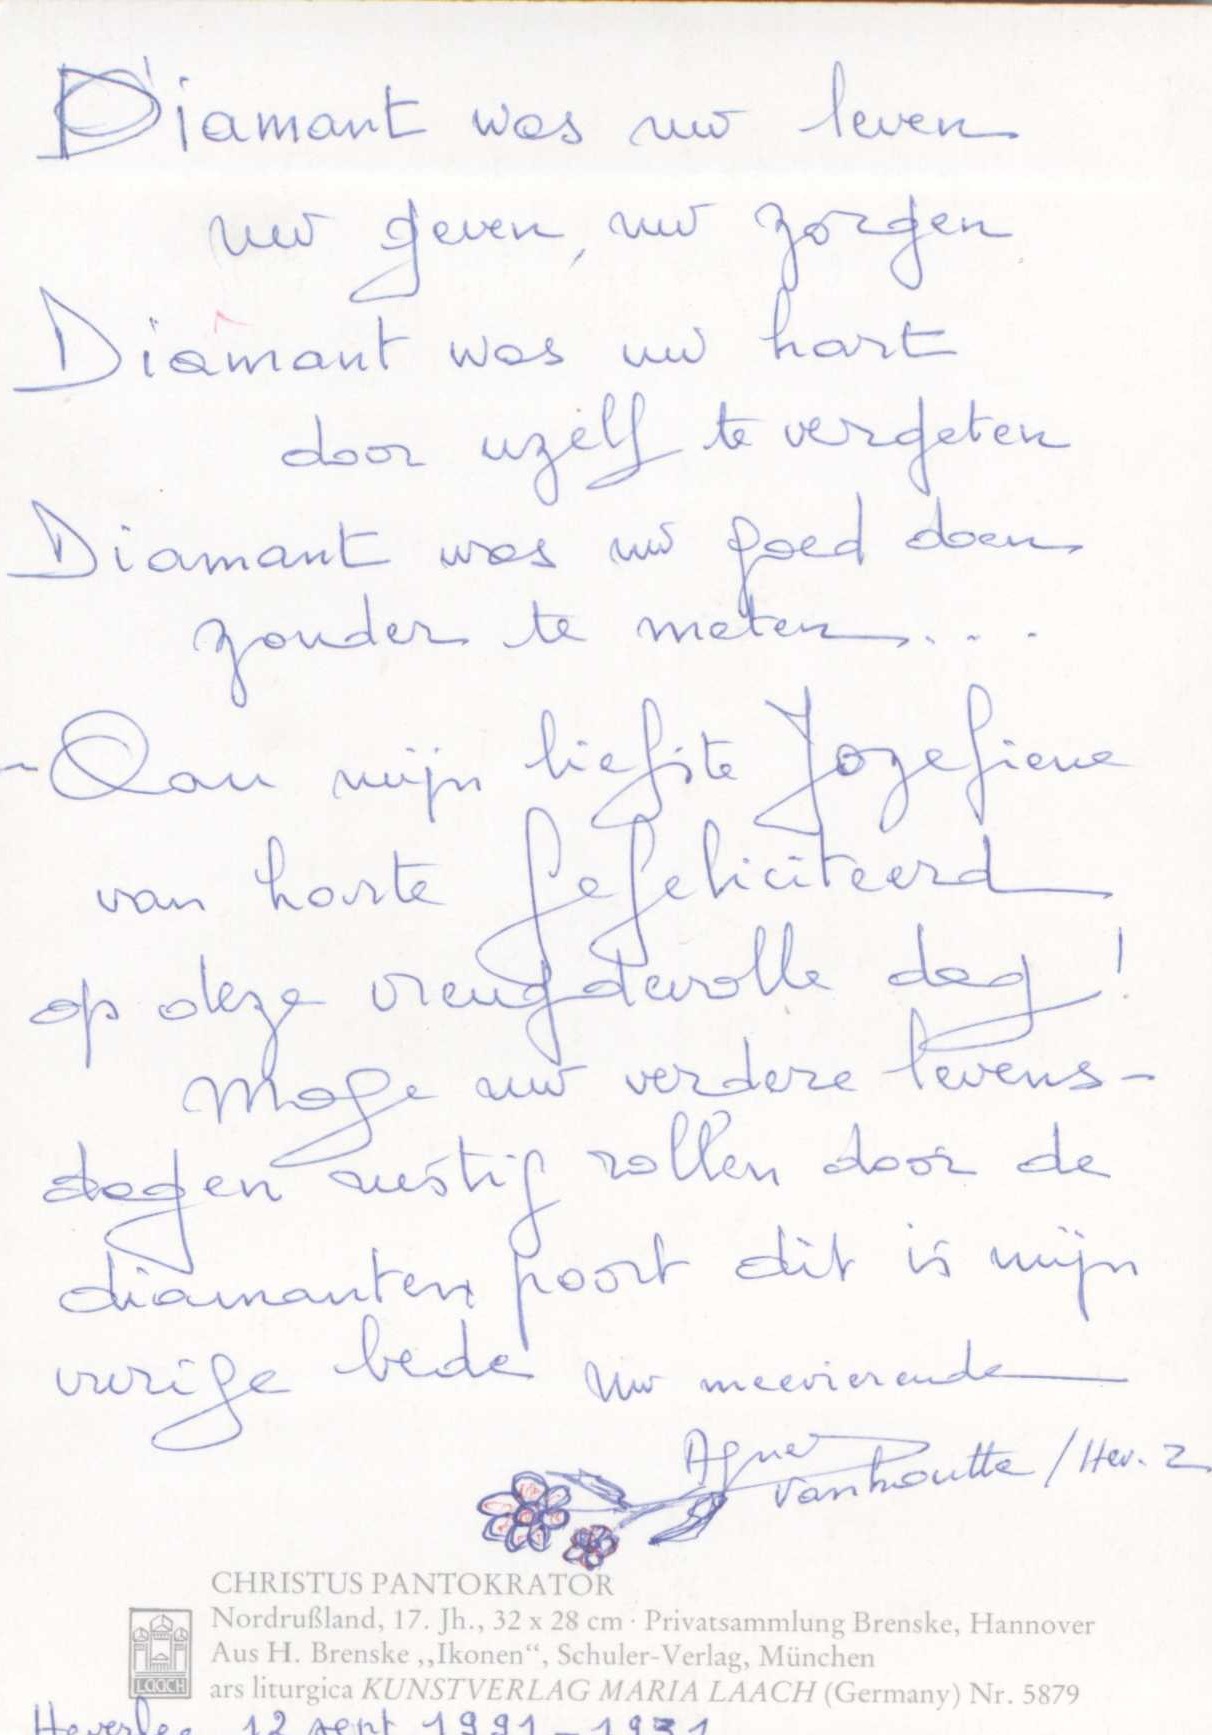 Diamant was uw leven
uw geven, uw zorgen
Diamant was uw hart
door uzelf te vergeten
Diamant was uw goed doen
zonder te meten...
- Aan mijn liefste Jozefiene
van harte gefeliciteerd
op deze vreugdevolle dag!
Moge uw verdere levens-
dagen rustig rollen door de
diamanten poort dit is mijn
vurige bede uw meevierende
Agnes
Vanhoutte / Hev. 2
CHRISTUS PANTOKRATOR
Nordrußland, 17. Jh., 32 x 28 cm · Privatsammlung Brenske, Hannover
Aus H. Brenske „Ikonen“, Schuler-Verlag, München
LAACH
ars liturgica KUNSTVERLAG MARIA LAACH (Germany) Nr. 5879
Heverlee 12 sept 1991 - 1931